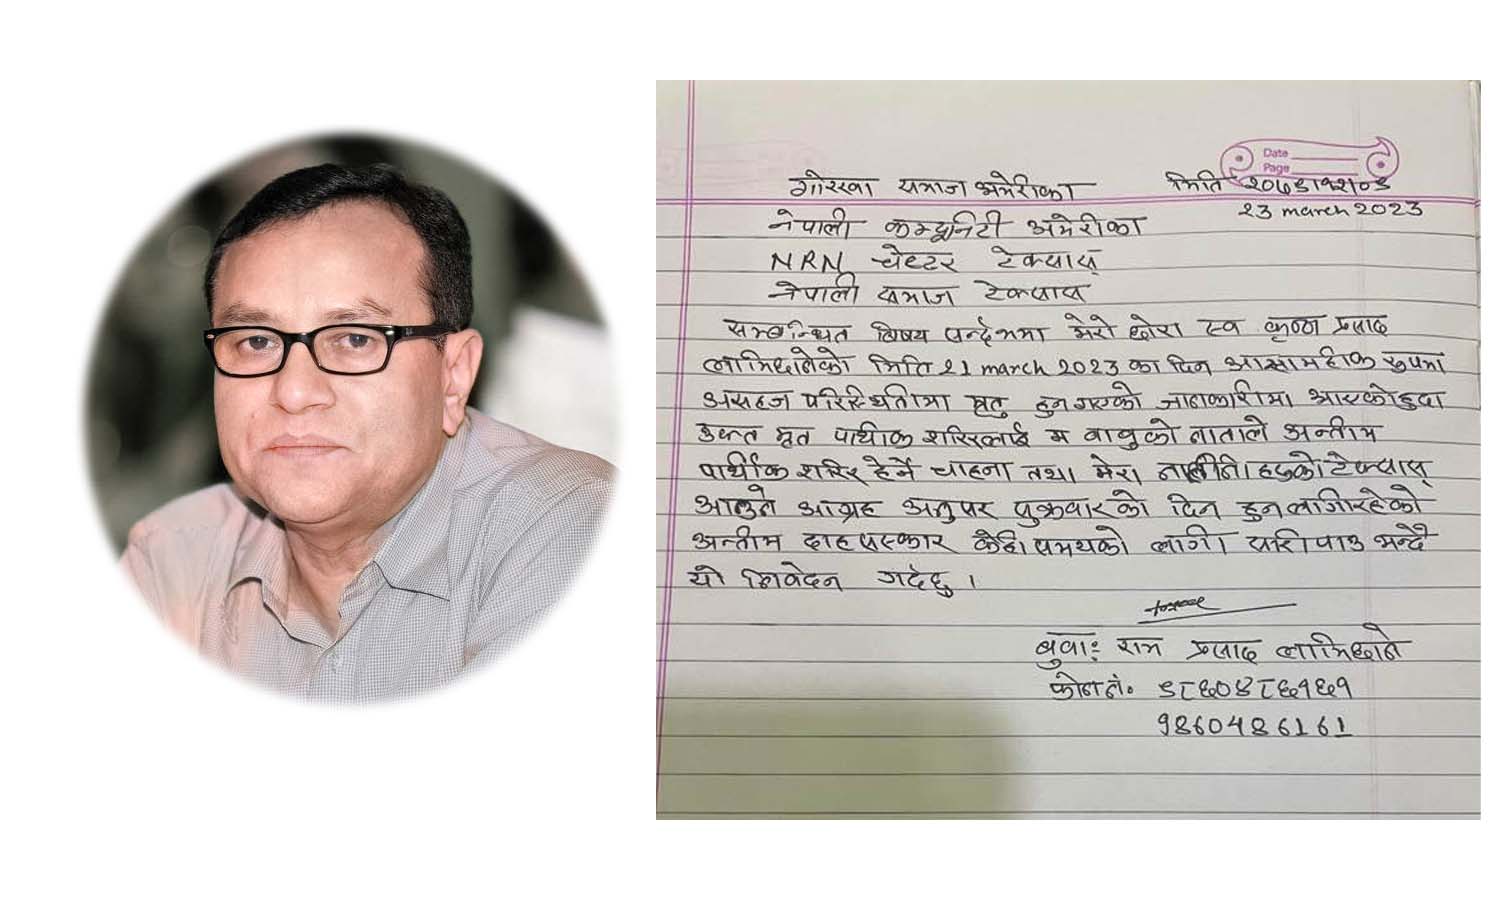 Date
Page
गोरखा समाज अमेरीका
मिति २०७९।१२।०९
23 march 2023
नेपाली कम्युनिटी अमेरीका
NRN च्याप्टर टेक्सास्
नेपाली समाज टेक्सास
सम्बन्धित विषय सर्न्दभमा मेरो छोरा स्व कृष्ण प्रसाद
लामिछानेको मिति 21 march 2023 का दिन रुपमा
असहज परिस्थितीमा मृतु हुनगएको जानकारीमा आएकोहुदा
उक्त मृत पार्थीक शरिरलाई म बाबुको नाताले अन्तीम
पार्थीक शरिर हेर्ने चाहना तथा मेरा टेक्सास्
आउने आग्रह अनुसार सुक्रवारको दिन हुनलागीरहेको
अन्तीम दाहसंस्कार केही समयको लागी सारीपाउ भन्दै
यो निवेदन गर्दछु ।
बुवाः राम प्रसाद लामिछाने
फोन नं. ९८६०४८६१६१
9860486161